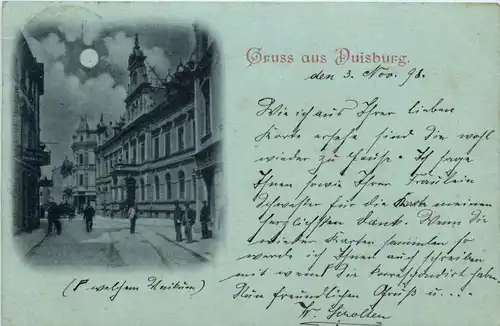 Gruss aus Duisburg.
den 3. Nov. 98.
Wie ich aus Ihrer lieben
Karte ersehe sind Sie wohl
wieder zu Hause. Ich sage
Ihnen sowie Ihrer Fräulein
Schwester für die Karte meinen
herzlichsten Dank. Wenn Sie
wieder Karten sammlen so
werde ich Ihnen auch schreiben
mit wem Sie correspondirt haben.
Nun freundlichen Gruß u....
W. Scholten
welchem Unikum)